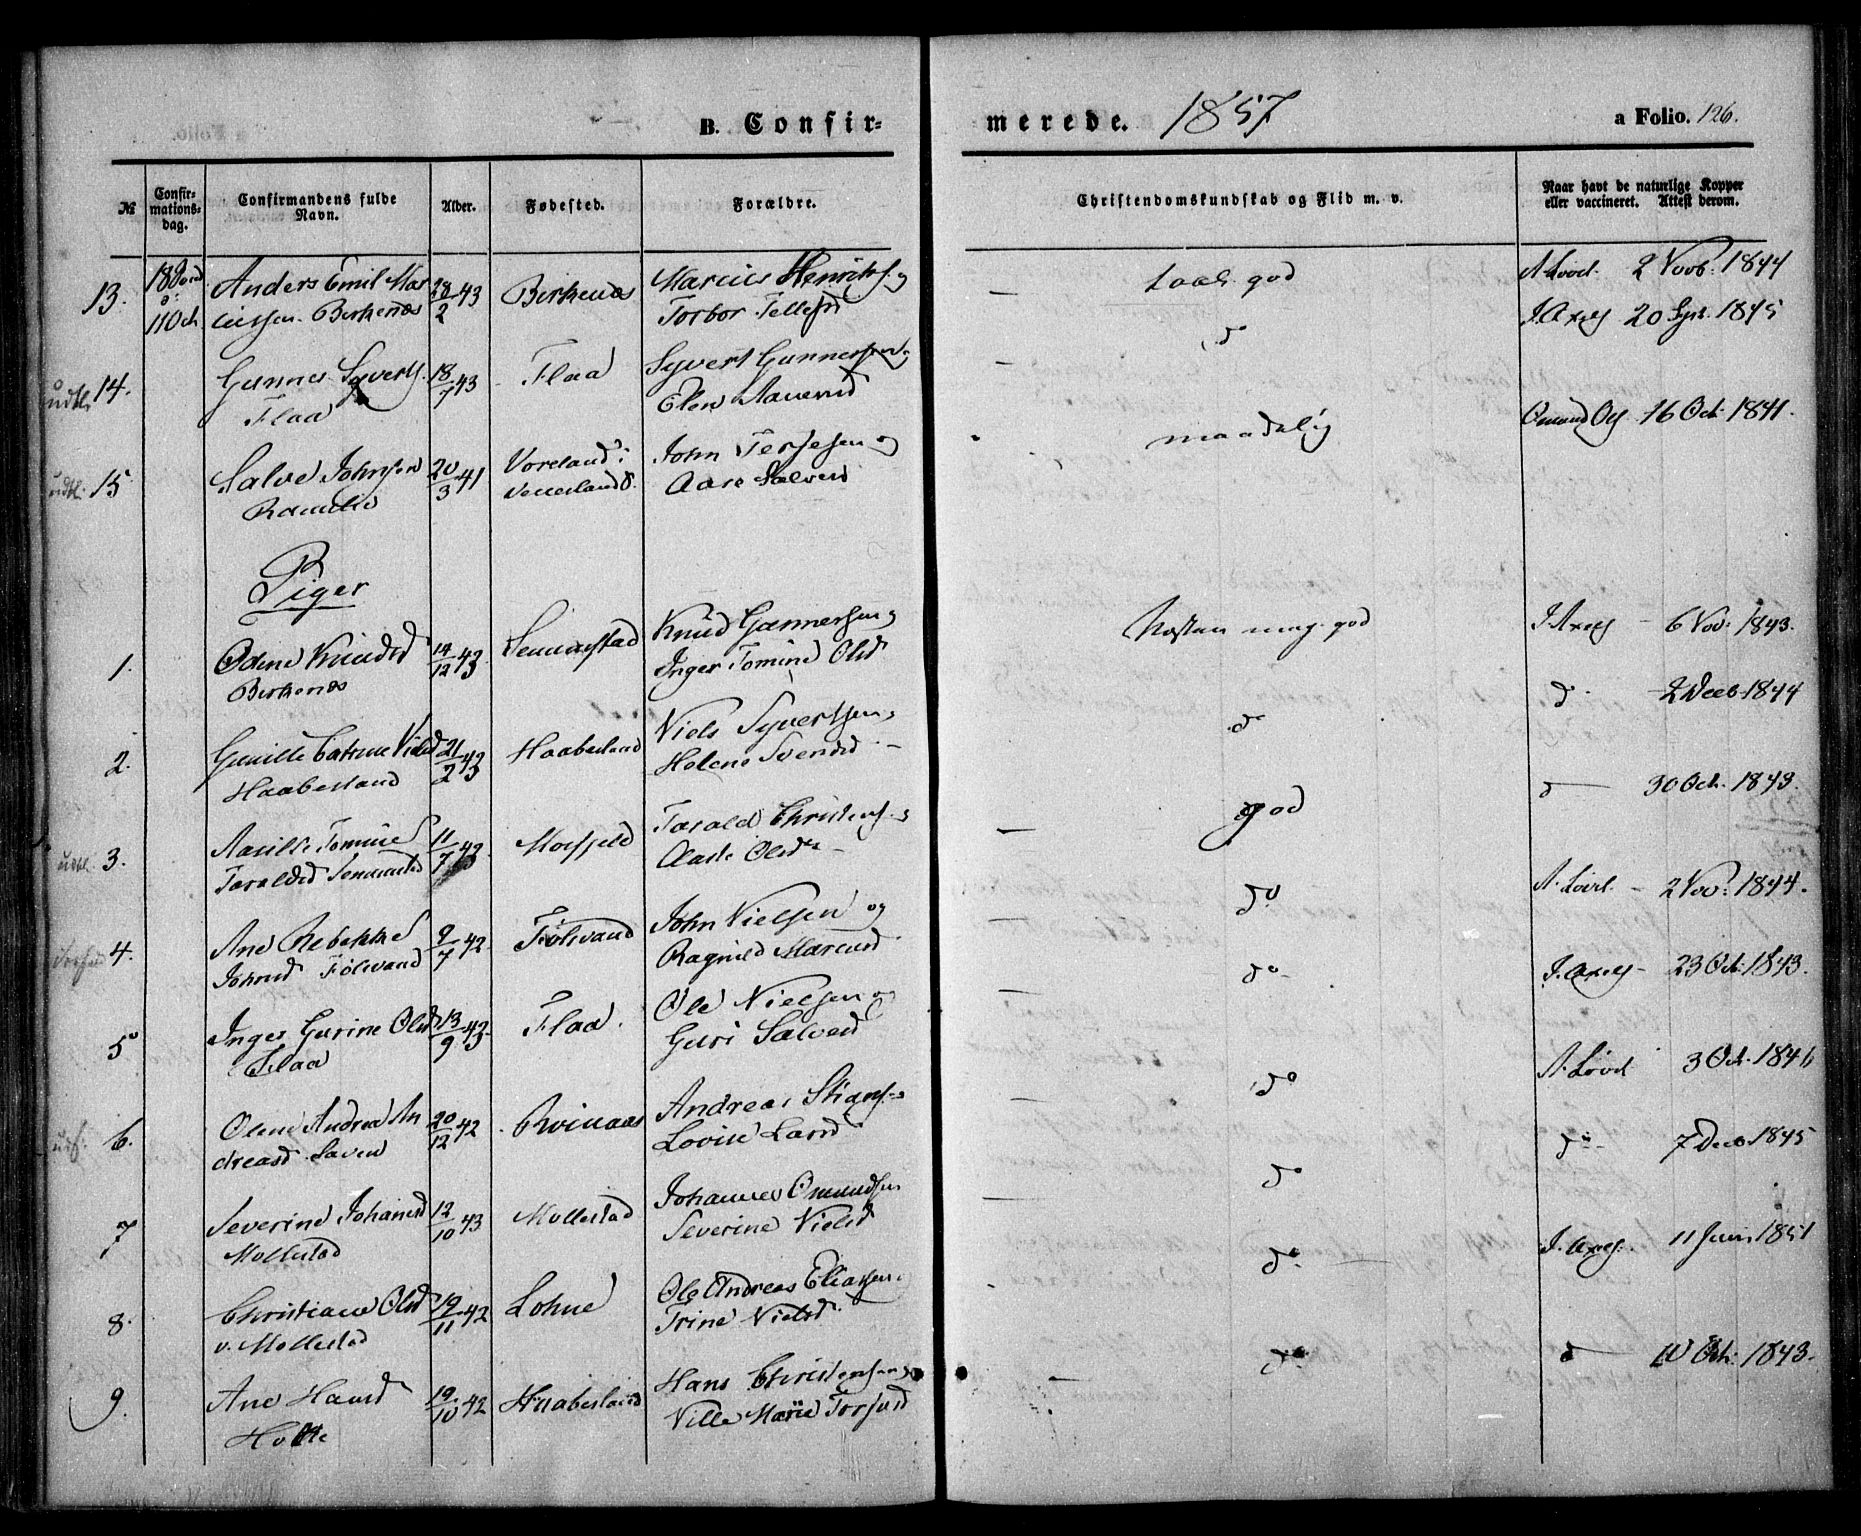 B. Confir-
merede. 1857
a Folio. 126.
№
Confir-
mations-
dag.
Confirmandens fulde
Navn.
Alder.
Fødested.
Forældre.
Christendomskundskab og Flid m. v.
Naar havt de naturlige Kopper
eller vaccineret. Attest derom.
13. Anders Emil Mar 28/2 43 Birkenæs Marcus Henriks. og
Birkenæs Torbor Tellefsd
god
A. Lovel. 2 Novb. 1844
udtl. 14. Gunner Syverts. 18/7 43 Flaa Syvert Gunnersen og
Flaa Elen
do
J. Axels 20 Spt. 1845
udtl. 15 Salve Johnsen 20/3 41 Voreland i John Terjesen og
Aase Salvesd
maadelig
16 Oct. 1841.
Piger
1. Odine Knudsd 14/12 43 Sennestad Knud Gunnersen og
Birkenæs Inger Tomine Olsd
Næsten meg. god
J. Axels – 6 Nov: 1843.
2. Gunille Catrine Nielsd 21/2 43 Haabesland Niels Syvertsen og
Haabesland Helene Svendsd –
do
do – 2 Decb 1844
udtl. 3. Tomine 11/7 43 Mosfjeld Tarald Christens. og
Taraldsd Sennestad Aaste Olsd –
god
do – 30 Oct. 1843.
4. Ane Rebekke 9/7 42 Følevand John Nielsen og
Johnsd Følevand Ragnild Marcusd
do
A. Lovel. – 2 Nov: 1844.
5 Inger Gurine Olsd 13/9 43 Flaa. Ole Nielsen og
Flaa Guri Salvesd
do
J. Axels – 23 Oct. 1843.
6. Oline Andrea An 20/12 42 Andreas Stians. og
dreasd Lovise Larsd
do
A. Lovel 3 Oct. 1846
7 Severine Johanesd 12/10 43 Mollestad Johannes Omundsen
Mollestad Severine Nielsd
do
do – 7 Decb 1845
8. Christiane Olsd 19/11 42 Lohne Ole Andreas Eliassen
v. Mollestad Trine Nielsd.
do
J. Axels. 11 Juni 1851
9. Ane Hansd 19/10 42 Haabesland Hans Christensen og
Holte Ville Marie Torjusd
do
do 10 Oct. 1843.